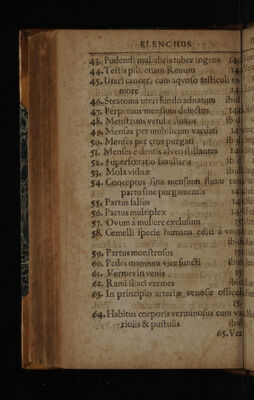 ELENCHUS
43. Pudendi muliebris tuber ingens
44. Testis pili, etiam Renum
45. Uteri cancer, cum aquoso testiculi tu-
more
46. Steatoma uteri fundo adnatum ibid
47. Perpetuus mensium defectus
48. Menstruus vetulæ fluxus ibid
49. Menses per umbilicum vacuati
50. Menses per crus purgati ib
51. Menses è dentis alveo stillantes
52. Superfœtatio familiaris
53. Mola viduæ ibid
54. Conceptus sine mensium fluxu
partu sine purgamentis
55. Partus falsus
56. Partus multiplex
57. Ovum à muliere exclusum
58. Gemelli specie humana editi à vacca
ibid
59. Partus monstrosus
60. Pedes manuum vice functi ibid
61. Vermes in venis
62. Rami iliaci vermes ibid
63. In principio arteriæ venosæ
64. Habitus corporis verminosus cum va-
riolis & pustulis ibid
65. Ver